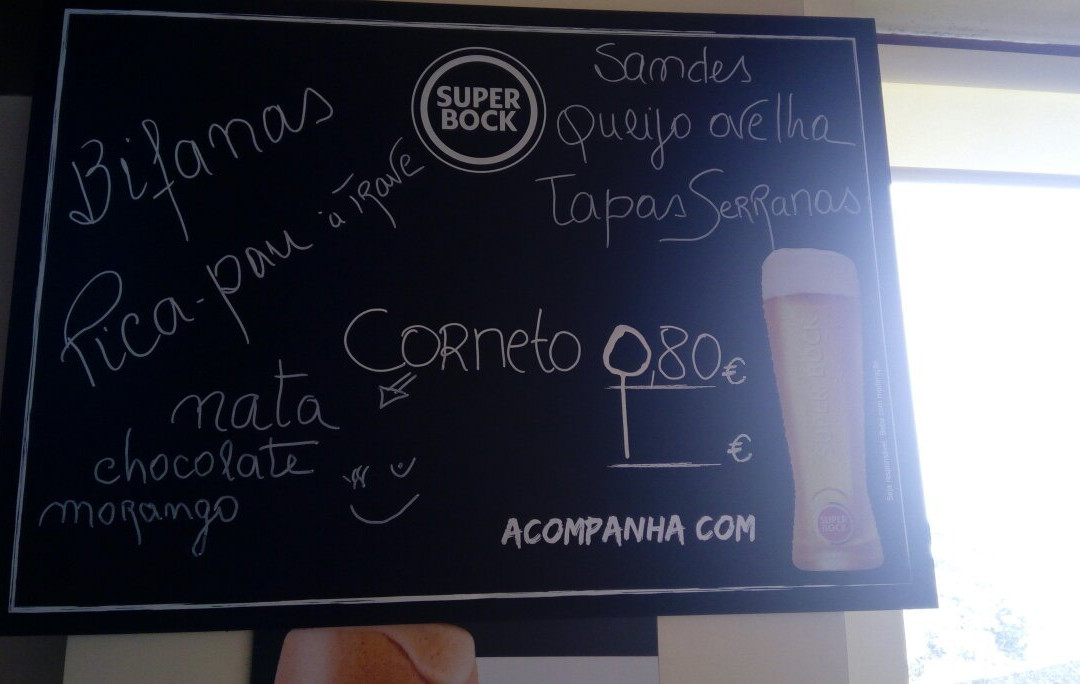 SUPER
BOCK
Bifanas
Pica-pau à TRAVE
Sandes
Queijo ovelha
Tapas SeRRanas
CoRNeto 0,80€
€
nata
chocolate
moRango
ACOMPANHA COM
SUPER BOCK
SUPER
BOCK